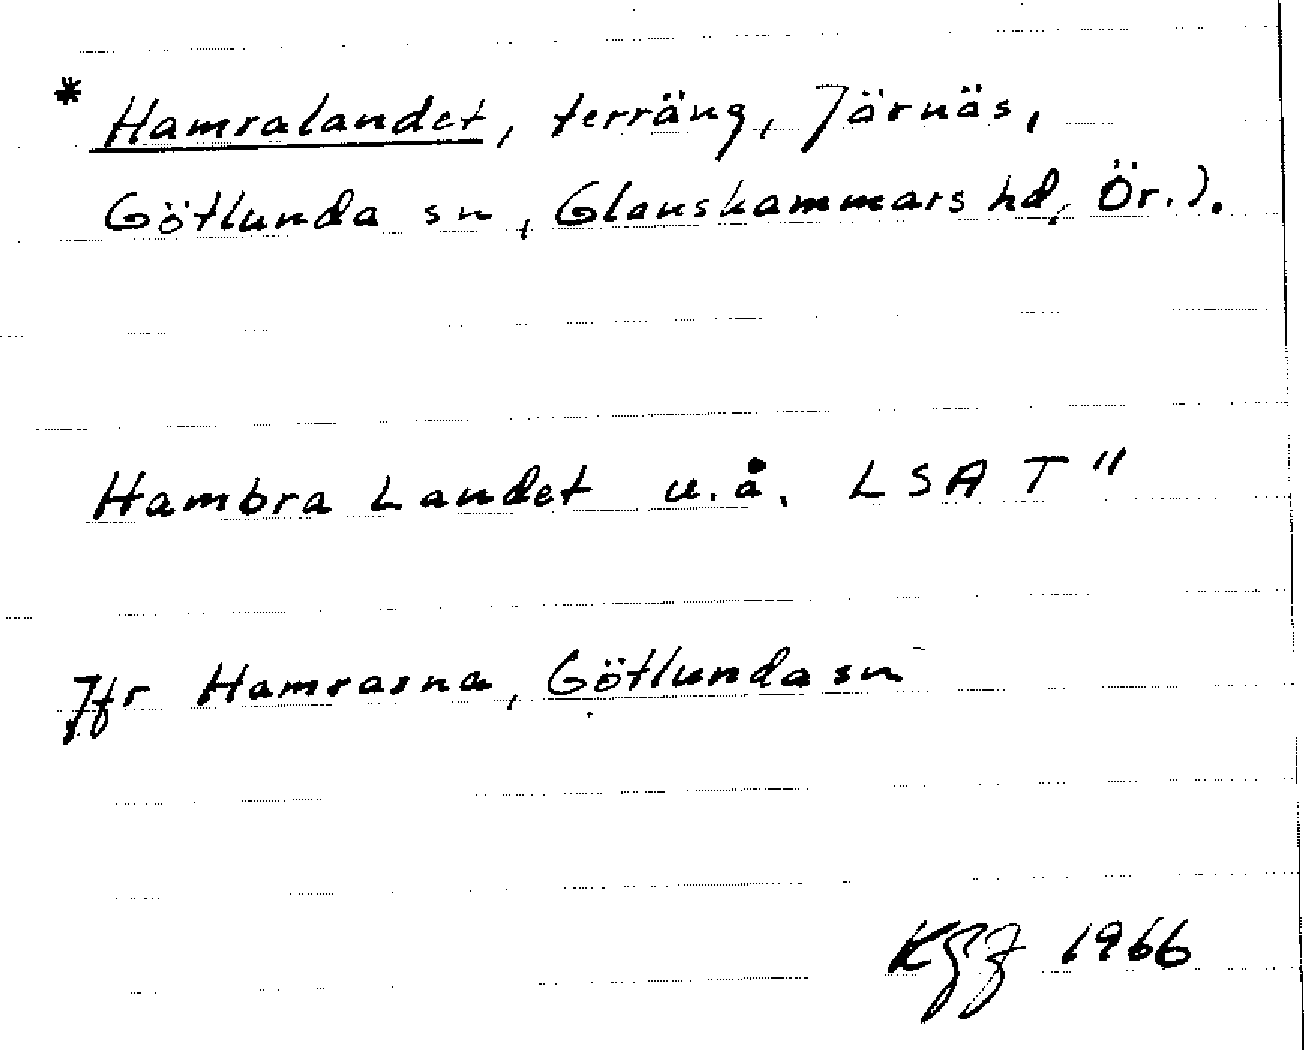 * Hamralandet, terräng, Järnäs,
Götlunda sn, Glanshammars hd, Ör. l.
Hambra Landet u.å. LSA T"
Jfr Hamrarna, Götlunda sn
1966